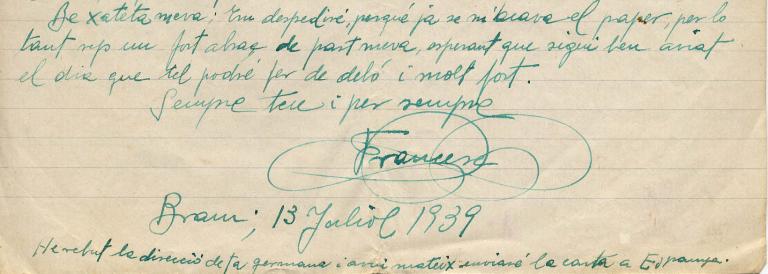 Be xateta meva; Em despediré, perquè ja se m'acava el paper, per lo
tant reps un fort abraç de part meva, esperant que sigui ben aviat
el dia que tel podré fer de debó i molt fort.
Sempre teu i per sempre
Francesc
Bram; 13 Juliol 1939
He rebut la direcció de ta germana i avui mateix enviaré la carta a Espanya.